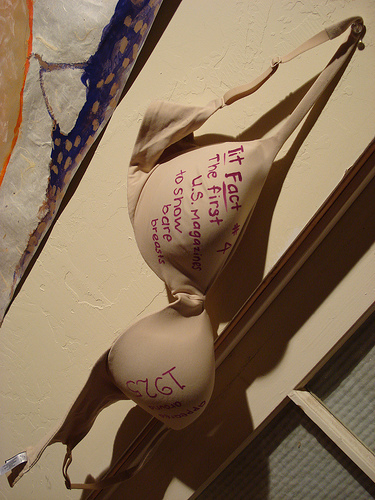 Tit Fact # 4
The first
U.S. magazines
to show
bare
breasts